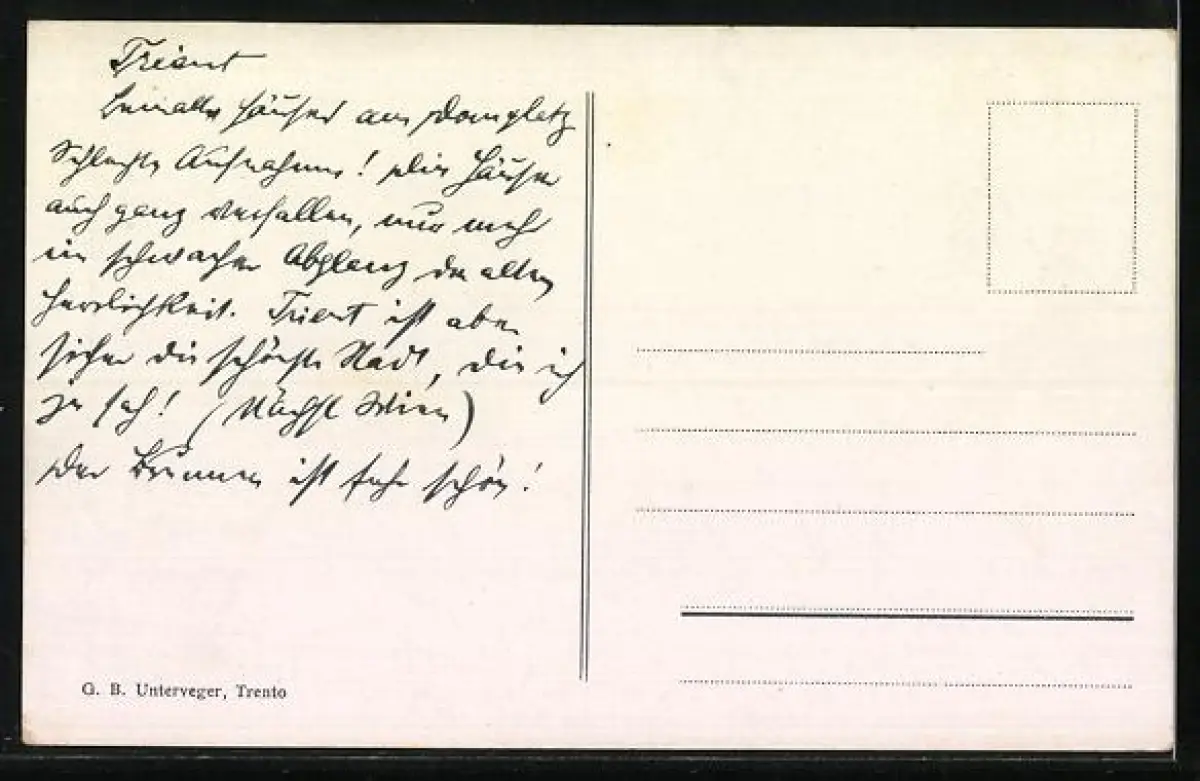 Trient
bemalte Häuser am Domplatz
Schlechte Aufnahme! Die Häuser
auch ganz verfallen, nur mehr
ein schwacher Abglanz der alten
Herrlichkeit. Trient ist aber
sicher die schönste Stadt, die ich
je sah! (Nächst Wien)
Der Brunnen ist sehr schön!
G. B. Unterveger, Trento